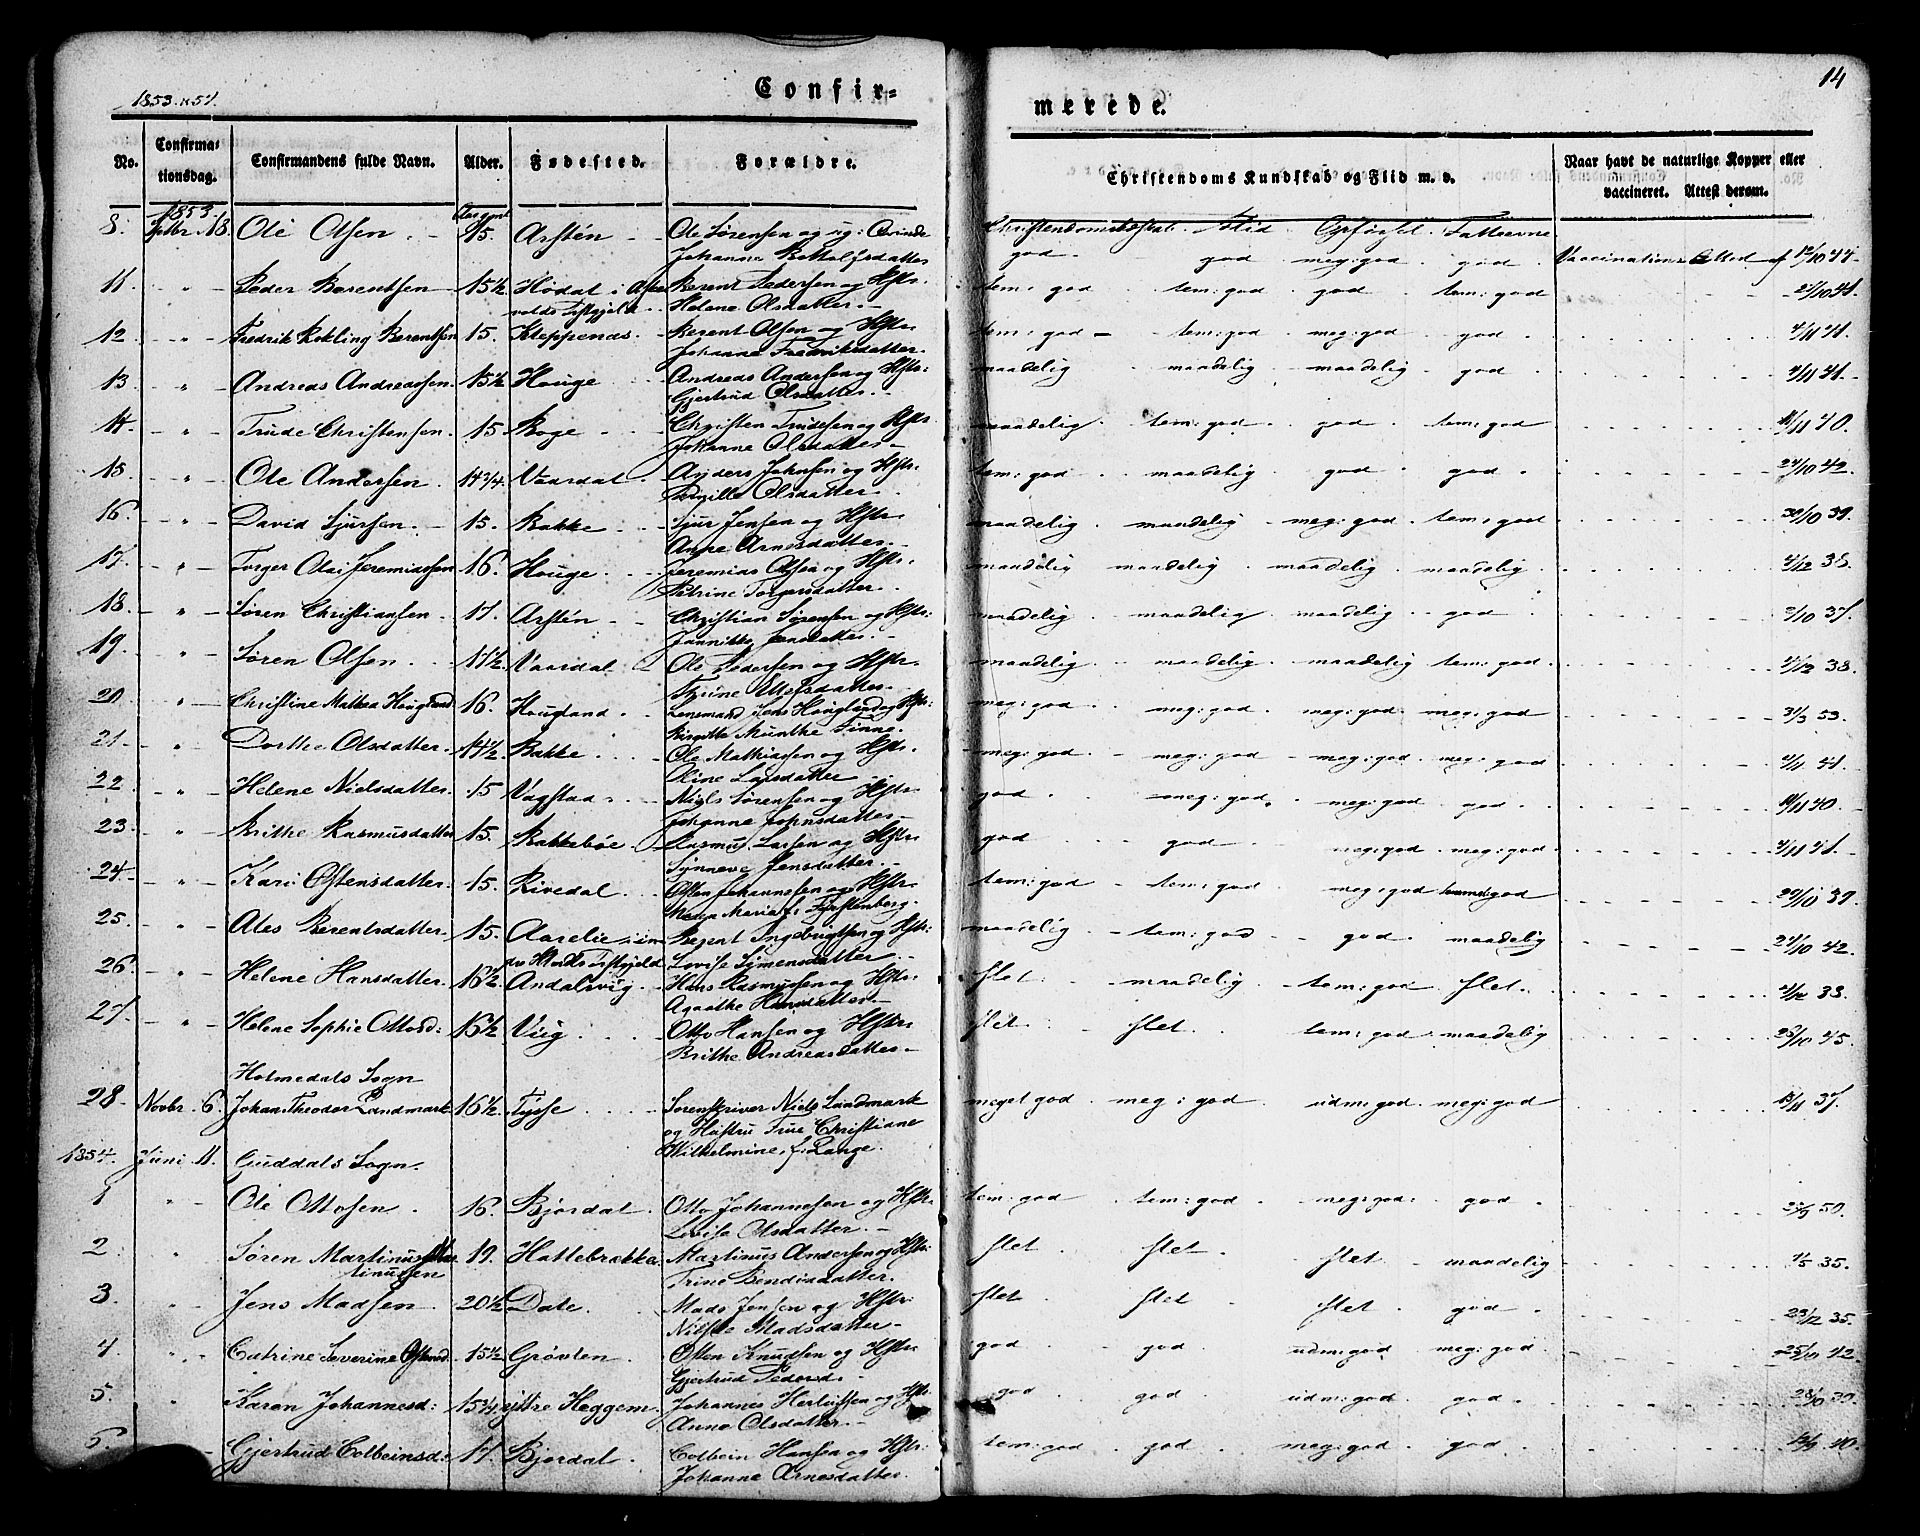 14
1853 & 54.
Confir=
merede.
No.
Confirma-
tionsdag.
Confirmandens fulde Navn.
Alder.
Fødested.
Forældre.
Christendoms Kundskab og Flid m. v.
Naar havt de naturlige Kopper eller
vaccineret. Attest derom.
1853
8. 18. Ole Olsen 15. Arstén Ole Sørensen og
Johanne god god meg: god god Vaccinations Attest af
11 " Peder Berentsen 15½ Hødal i Berent Pedersen og Hstr. tem: god tem: god god tem: god
Helene Olsdatter
12 " Fredrik Berentsen 15. Kleppenæs Berent Olsen og Hstr. tem: god tem: god meg: god god 4/11 41.
Johanne Fredriksdatter.
13 " Andreas Andreassen 15½ Houge Andreas Andersen og Hstr: maadelig maadelig maadelig god 2/11 41.
Gjertrud Olsdatter
14 " Trude Christensen 15 Boge Christen Trudesen og Hstr. maadelig tem: god god tem: god 11/11 40.
Johanne Olsdatter
15 " Ole Andersen 14 3/4 Vaardal Anders Johnsen og Hstr. tem: god maadelig god god 24/10 42.
Olsdatter
16 " David Sjursen 15. Bakke Sjur Jensen og Hstr. maadelig maadelig meg: god tem: god 39.
Anne Arnesdatter
17. " Torger Olai Jeremiassen 16. Houge Jeremias Olsen og Hstr. maadelig maadelig maadelig maadelig 4/12 38.
Petrine Torgersdatter
18 " Søren Christiansen 17. Arstén Christian Sørensen og Hstr: maadelig maadelig maadelig god 37.
Jannikke Jensdatter
19. " Søren Olsen 17½ Vaardal Ole Pedersen og Hstr. maadelig maadelig maadelig tem: god 4/12 38
Thrine
20 " Christine Mathea Hougland 16. Hougland Lensmand Jens Hougland og Hstr: meg: god meg: god meg: god meg: god 31/3 53.
Birgitte Munthe Finne.
21 " Dorthe Olsdatter 14½ Bakke Ole Mathiassen og Hstr. meg: god meg: god meg: god meg: god 41.
Oline Larsdatter
22 " Helene Nielsdatter 15 Vagstad Niels Sørensen og Hstr. god meg: god meg: god god 40.
Johanne Johnsdatter
23 " Brithe Rasmusdatter 15. Bakkebøe Rasmus Larsen og Hstr. god god meg: god meg: god 41.
Synneve Jensdatter
24 " Kari Østensdatter 15. Rivedal Østen Johannesen og Hstr. tem: god tem: god meg: god god 39.
Maria f. Fürstenberg.
25 " Ales Berentsdatter 15. Berent Ingebrigtsen og Hstr: maadelig tem: god god maadelig 24/10 42.
Lovise Symensdatter
26 " Helene Hansdatter 16½ Andalsvig Hans Rasmussen og Hstr: slet maadelig tem: god slet 38.
Agathe Hansdatter
27. " Helene Sophie Ottosd: 16½ Viig Otto Hansen og Hstr. slet slet tem: god maadelig 26/10 45.
Brithe Andreasdatter
Holmedals Sogn
28 Novbr. 6. Johan Theodor Landmark 16½ Tysse Sorenskriver Niels Landmark meget god meg: god udm: god meg: god 13/11 37.
og Hustru Frue Christiane
Wilhelmine f: Lange.
1854. Juni 11. Guddals Sogn.
1 " Ole Ottosen 16. Bjordal Otto Johannesen og Hstr. tem: god tem: god meg: god: god 50.
Lovise Olsdatter
2 " Søren Martinus Mar 19. Hattebrække Martinus Andersen og Hstr: slet slet slet maadelig 35.
tinussen Trine Bendixdatter.
3. " Jens Madsen 20½ Dale Mads Jensen og Hstr: slet slet slet god 35.
Madsdatter
4 " Catrine Severine Østensd: 15½ Grøvlen Østen Knudsen og Hstr. god god udm: god meg: god 25/10 42.
Gjertrud Pedersd:
5 " Karen Johannesd: 15 3/4 Heggem Johannes Herlufsen og Hstr. god god udm: god god 39.
Anne Olsdatter
6. Gjertrud Colbeinsd: 17 Bjordal Colbein Hansen og Hstr. tem: god god meg: god god 40.
Johanne Arnesdatter